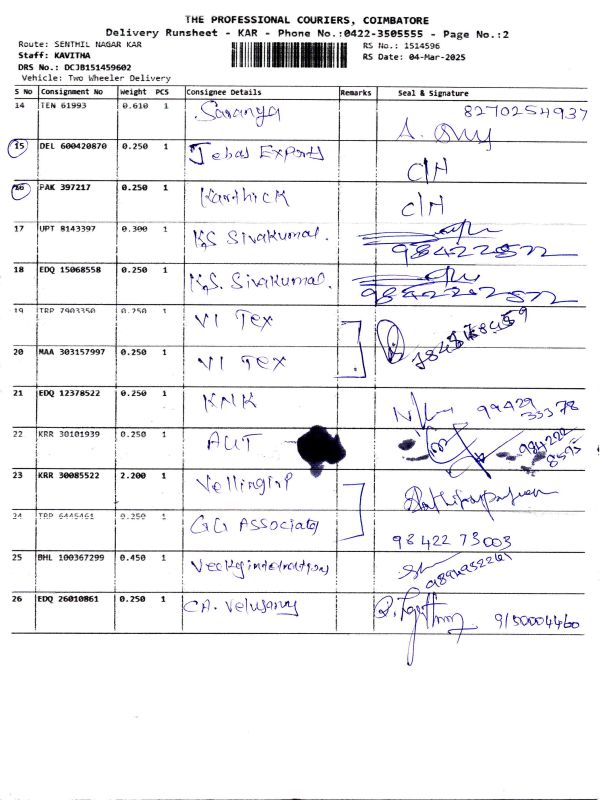 THE PROFESSIONAL COURIERS, COIMBATORE
Delivery Runsheet - KAR - Phone No.:0422-3505555 - Page No.:2
Route: SENTHIL NAGAR KAR
RS No.: 1514596
Staff: KAVITHA
RS Date: 04-Mar-2025
DRS No.: DCJB151459602
Vehicle: Two Wheeler Delivery
S No Consignment No Weight PCS Consignee Details Remarks Seal & Signature
14 TEN 61993 0.610 1 Saranya 8270254937
15 DEL 600420870 0.250 1 Jebas Exports C/H
16 PAK 397217 0.250 1 Karthick C/H
17 UPT 8143397 0.300 1 K.S Sivakumar.
18 EDQ 15068558 0.250 1 K.S. Sivakumar.
19 TRP 7903350 0.250 1 VI Tex
20 MAA 303157997 0.250 1 VI Tex
21 EDQ 12378522 0.250 1 KNK 99429 33378
22 KRR 30101939 0.250 1 AUT 984222 8595
23 KRR 30085522 2.200 1 Vellingiri
24 TRP 6445461 0.250 1 GG Associates 98422 73003
25 BHL 100367299 0.450 1
26 EDQ 26010861 0.250 1 CA. Velusamy 9150004460